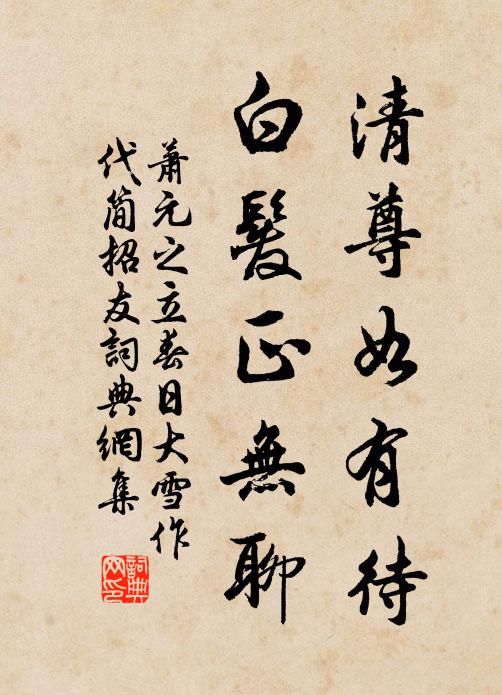 清尊如有待
白髮正無聊
蕭元之立春日大雪作
代簡招友詞典網集
詞典
网印